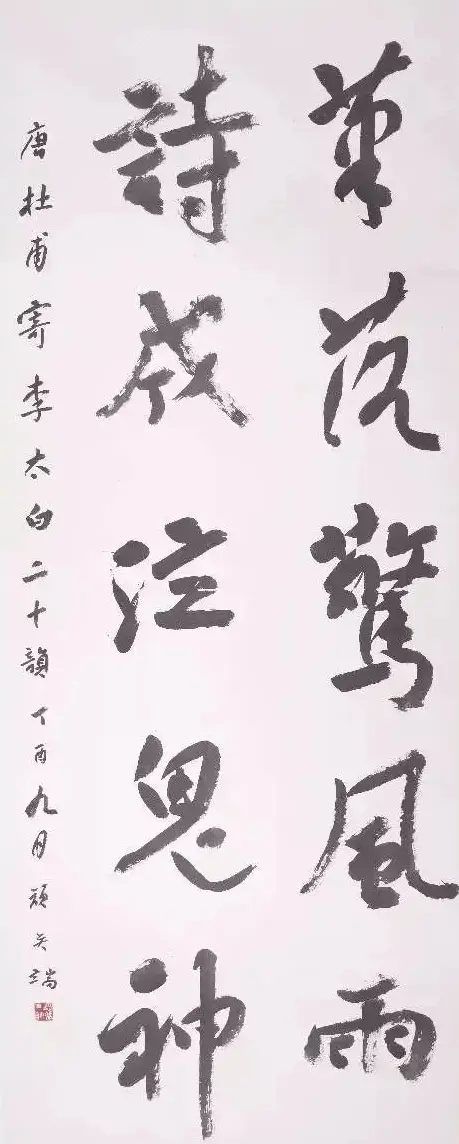 筆落驚風雨
詩成泣鬼神
唐杜甫寄李太白二十韻丁酉九月顾矣瑞